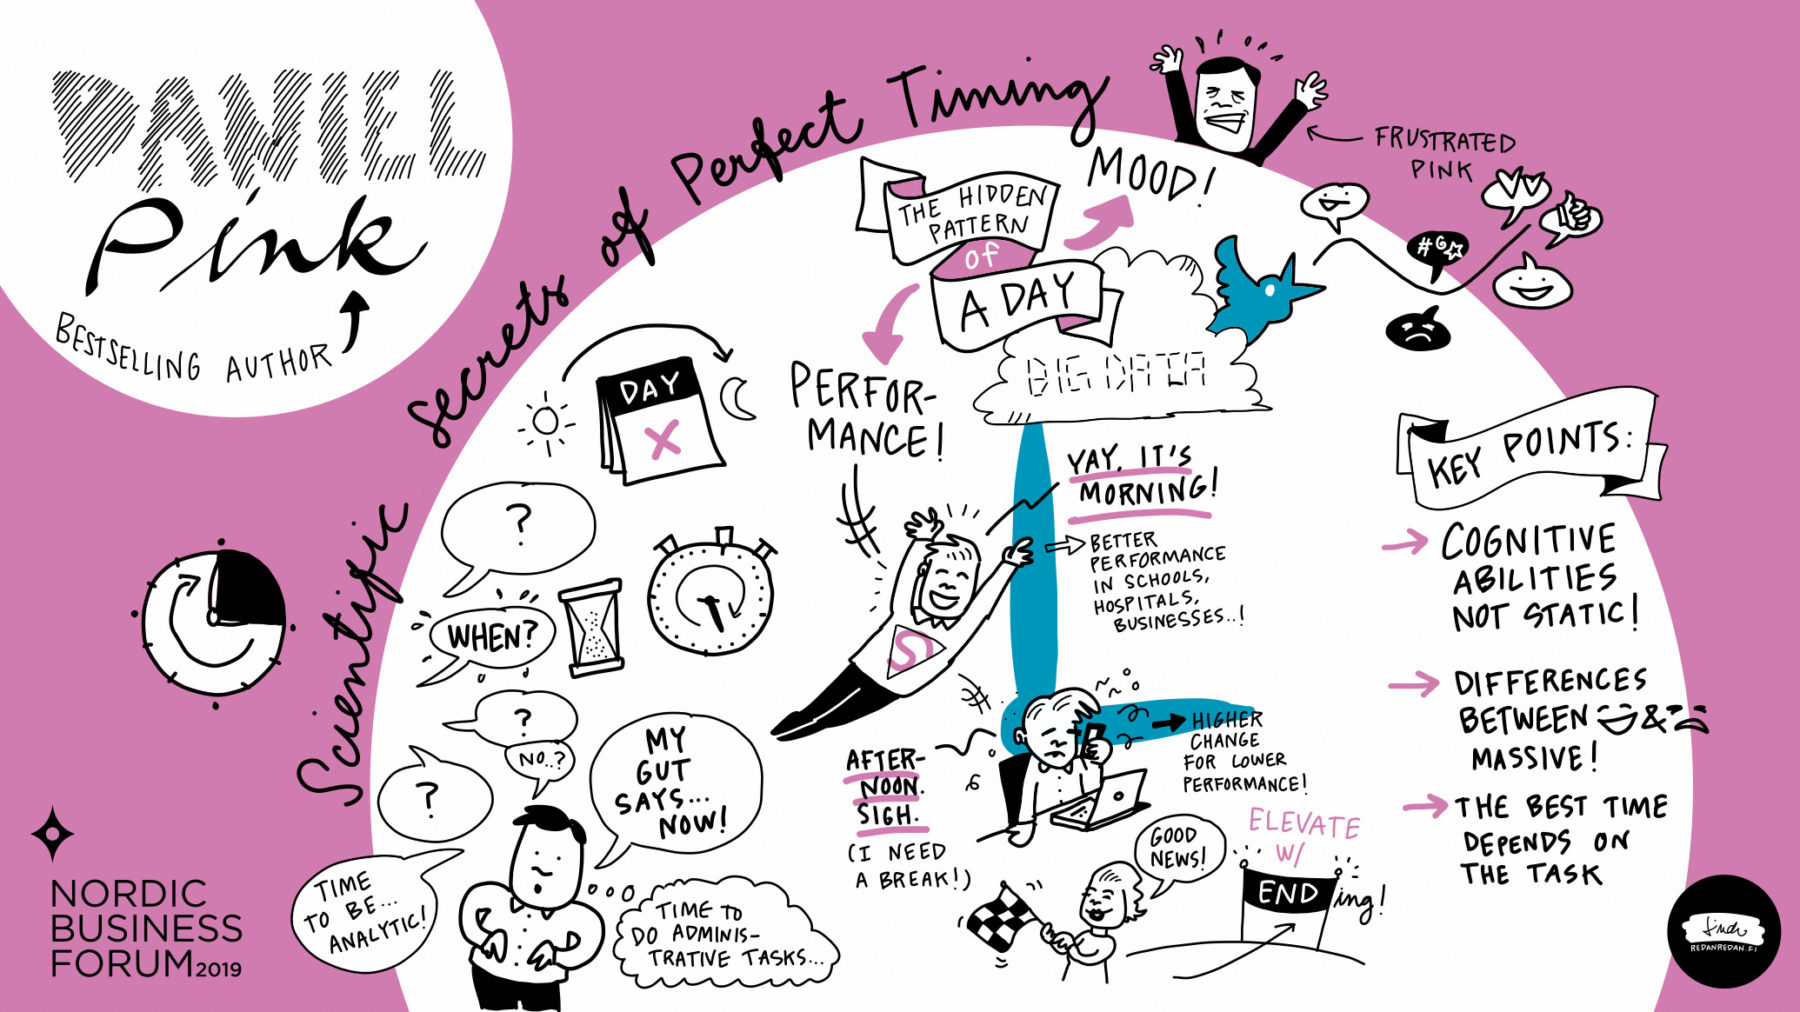 DANIEL
Pink
BESTSELLING AUTHOR
Scientific secrets of Perfect Timing
THE HIDDEN
PATTERN
of
A DAY
MOOD!
FRUSTRATED
PINK
#G
PERFOR-
MANCE!
BIG DATA
DAY
X
?
WHEN?
?
NO..?
?
MY
GUT
SAYS...
NOW!
TIME
TO BE...
ANALYTIC!
TIME TO
DO ADMINIS-
TRATIVE TASKS...
YAY, IT'S
MORNING!
BETTER
PERFORMANCE
IN SCHOOLS,
HOSPITALS,
BUSINESSES..!
S
AFTER-
NOON.
SIGH.
(I NEED
A BREAK!)
HIGHER
CHANGE
FOR LOWER
PERFORMANCE!
GOOD
NEWS!
ELEVATE
W/
END ing!
KEY POINTS:
COGNITIVE
ABILITIES
NOT STATIC!
DIFFERENCES
BETWEEN &
MASSIVE!
THE BEST TIME
DEPENDS ON
THE TASK
NORDIC
BUSINESS
FORUM 2019
REDANREDAN.FI